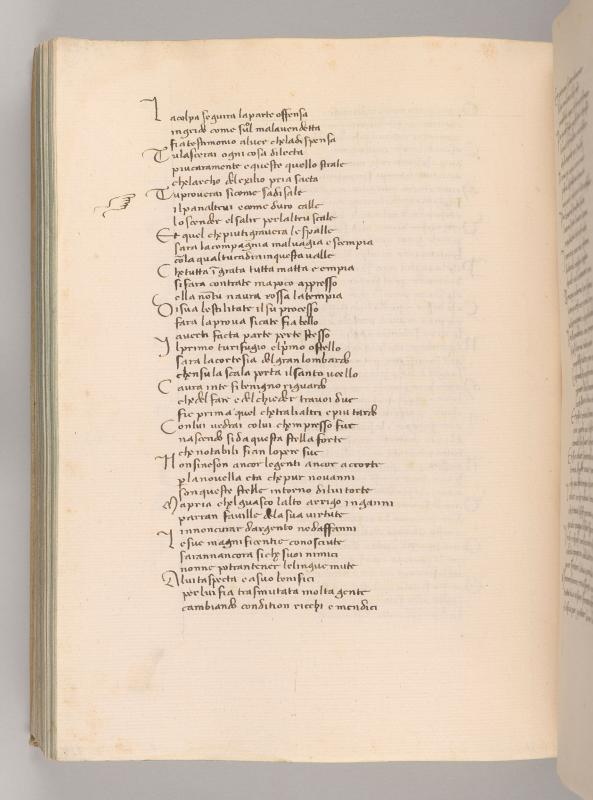 La colpa seguira laparte offensa
ingrido come suol malavendetta
fia testimonio aluer chela dispensa
Tu lascerai ogni cosa dilecta
piu caramente e queste quello strale
che larcho del exilio pria saeta
Tu proverai sicome sa di sale
il pan altrui e come duro calle
lo scender el salir per laltrui scale
Et quel che piu ti gravera le spalle
sara la compagnia malvagia e scempia
cō la qual tu cadrai in questa valle
Che tutta īgrata tutta matta e empia
si fara contrate ma poco appresso
ella nō tu naura rossa la tempia
Di sua bestilitate il su processo
fara la prova sicate fia bello
averti facta parte per te stesso
Il primo tu rifugio el primo ostello
sara la cortesia del gran lombardo
chensu la scala porta il santo ucello
Caura inte si benigno riguardo
che del fare e del chieder tra voi due
fie prima quel che tralialtri e piu tardo
Con lui vedrai colui chempresso fue
nascendo si da questa stella forte
che notabili fian lopere sue
Non sine son ancor le genti ancor accorte
p la novella eta che pur nov anni
son queste stelle intorno di lui torte
Ma pria chel guasco lalto arrigo inganni
parran faville dela sua virtute
in non curar dargento ne daffanni
Le sue magnificentie conosciute
saranno ancora si che suoi nimici
nonne potran tener le lingue mute
A lui taspecta e a suo benifici
per lui fia trasmutata molta gente
cambiando condition ricchi e mendici